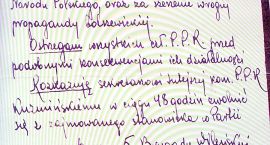 Narodu Polskiego, oraz za szerzenie wrogiej
propagandy bolszewickiej.
Ostrzegam wszystkich czł. P.P.R przed
podobnymi konsekwencjami ich działalności
Rozkazuję sekretarzowi tutejszej kom. P.P.R
w ciągu 48 godzin zwolnić
się z zajmowanego stanowiska w Partii
5 Brygady Wileńskiej